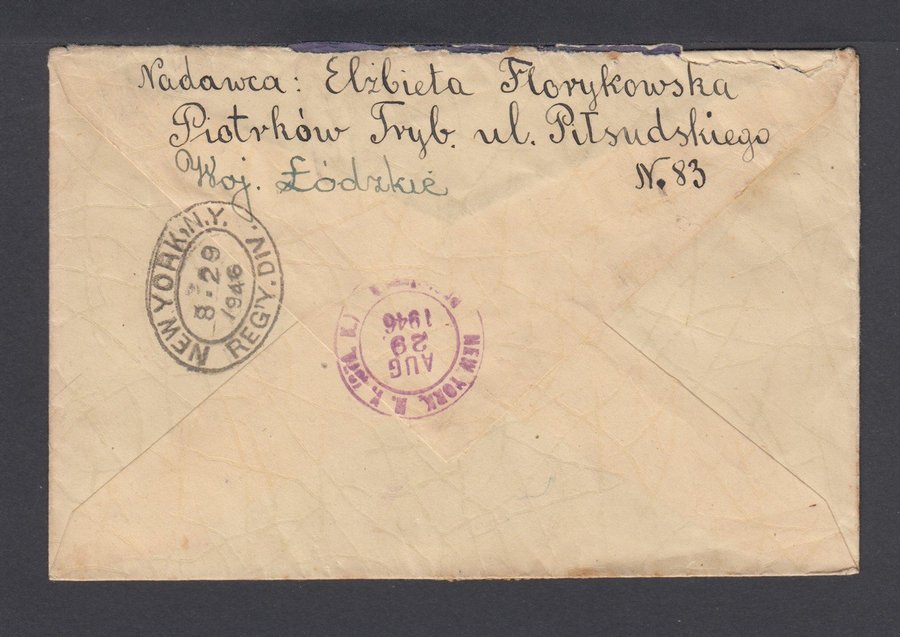 Nadawca: Elżbieta Florykowska
Piotrków Tryb. ul. Piłsudskiego
Woj. Łódzkie N. 83
NEW YORK, N.Y. REG'Y. DIV.
8-29
1946
NEW YORK, N. Y.
AUG
29
1946